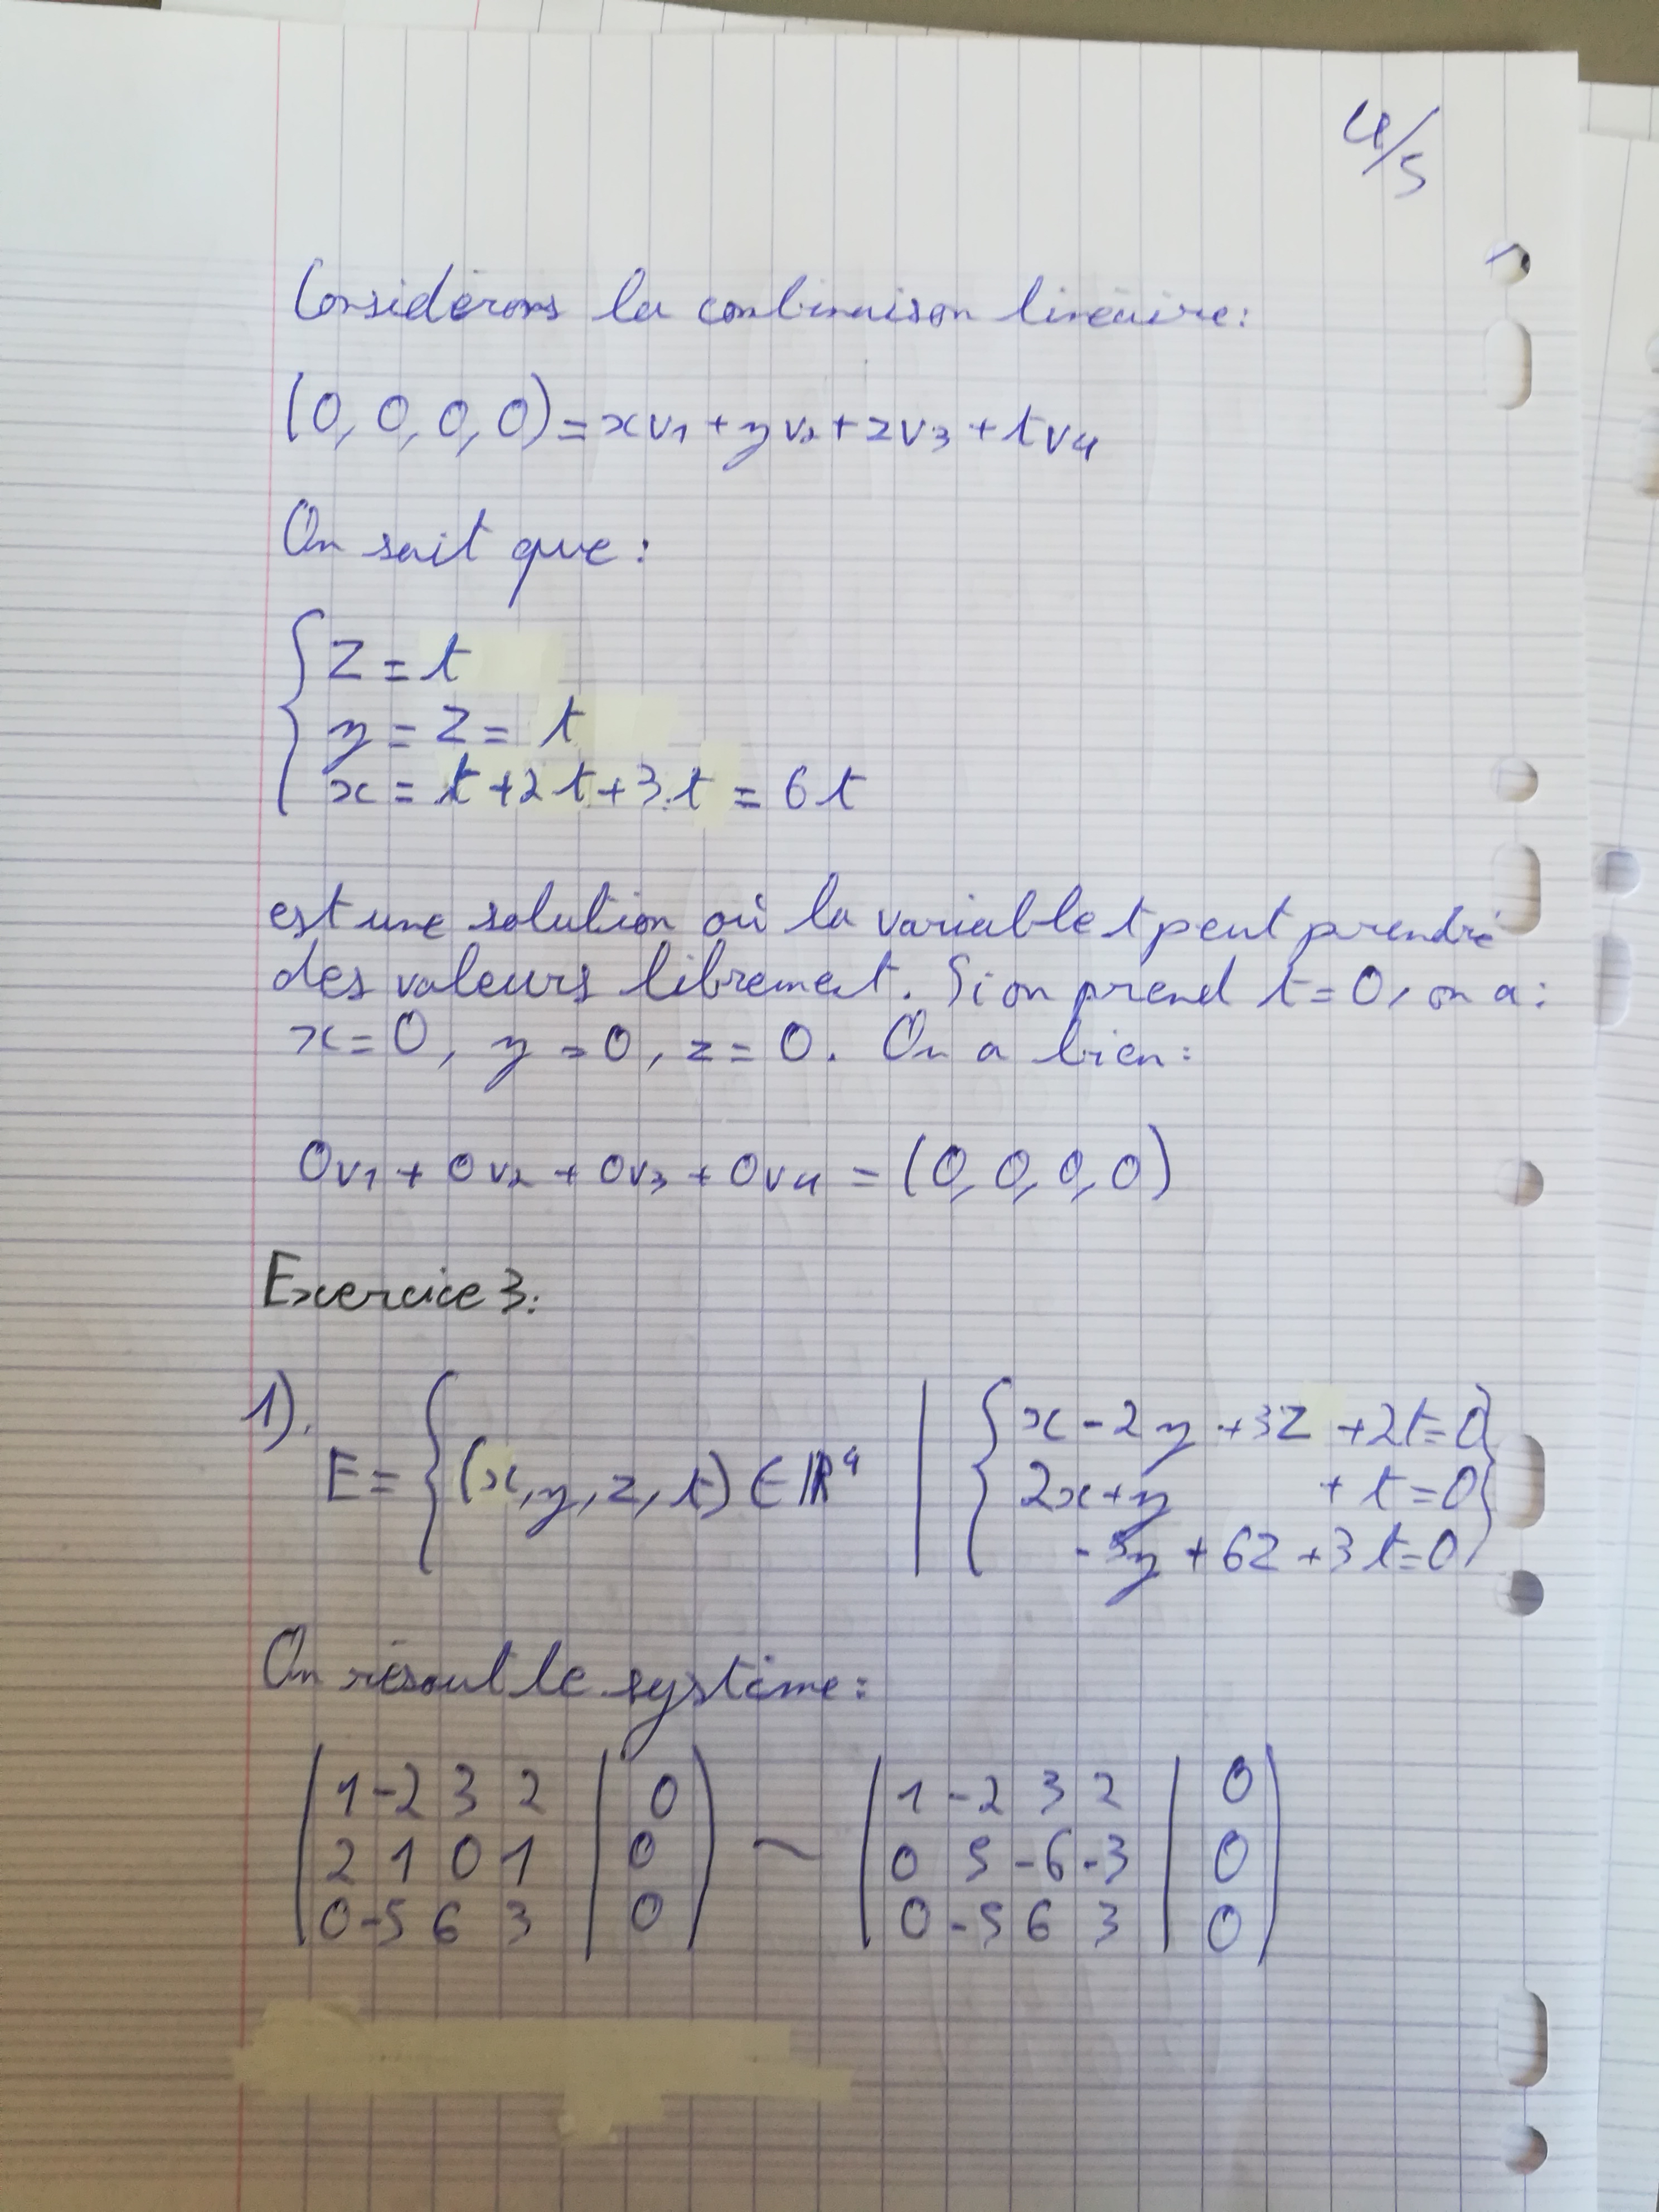 4/5
Considérons la combinaison linéaire:
(0, 0, 0, 0) = xv1 + yv2 + zv3 + tv4
On sait que:
z = t
y = z = t
x = t + 2t + 3t = 6t
est une solution où la variable t peut prendre
des valeurs librement. Si on prend t = 0, on a:
x = 0, y = 0, z = 0. On a bien:
0v1 + 0v2 + 0v3 + 0v4 = (0, 0, 0, 0)
Exercice 3:
1).
E = { (x, y, z, t) ∈ ℝ⁴ | { x - 2y + 3z + 2t = 0
2x + y + t = 0
- 5y + 6z + 3t = 0 }
On résout le système:
( 1 -2 3 2 | 0 ) ~ ( 1 -2 3 2 | 0 )
( 2 1 0 1 | 0 ) ( 0 5 -6 -3 | 0 )
( 0 -5 6 3 | 0 ) ( 0 -5 6 3 | 0 )